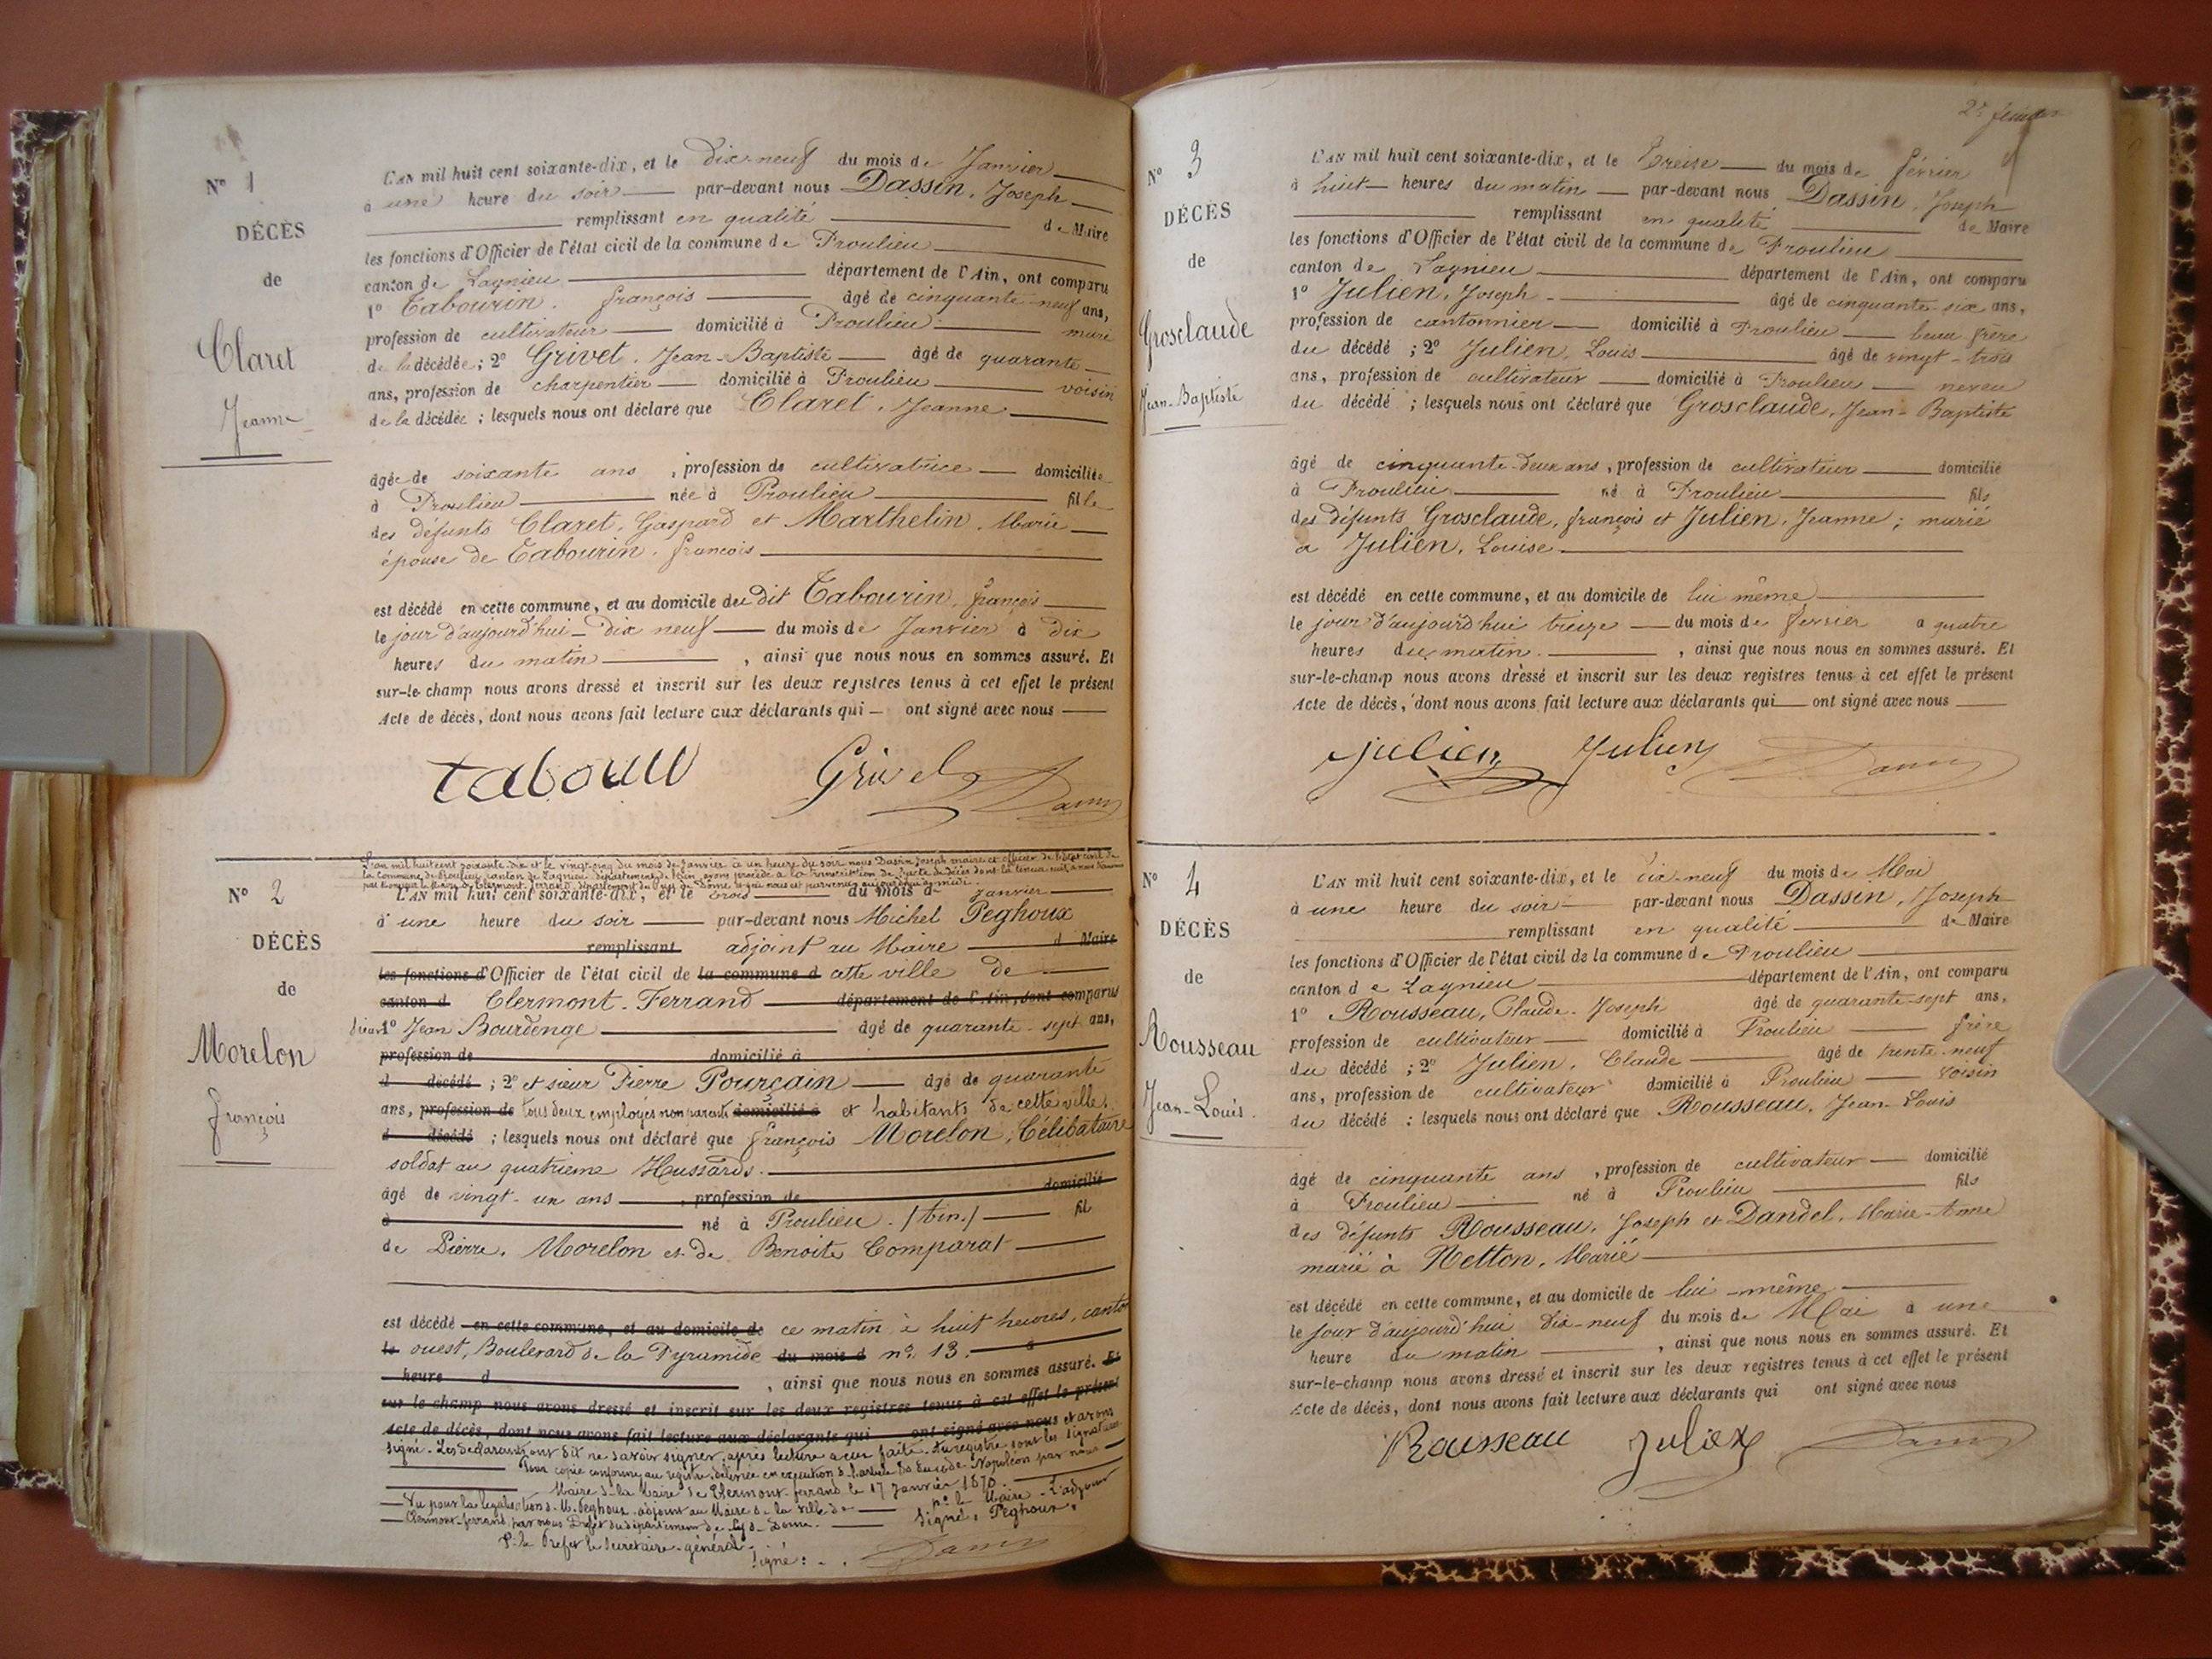 Nº 1
DÉCÈS
de
Claret
Jeanne
L'AN mil huit cent soixante-dix, et le Dix-neuf du mois de Janvier
à une heure du soir par-devant nous Dassin, Joseph
remplissant en qualité de Maire
les fonctions d'Officier de l'état civil de la commune de Proulieu
canton de Lagnieu département de l'Ain, ont comparu
1º Tabourin, françois âgé de cinquante-neuf ans,
profession de cultivateur domicilié à Proulieu mari
de la décédée ; 2º Grivet, Jean-Baptiste âgé de quarante
ans, profession de charpentier domicilié à Proulieu voisin
de la décédée ; lesquels nous ont déclaré que Claret, Jeanne
âgée de soixante ans, profession de cultivatrice domiciliée
à Proulieu née à Proulieu fille
des défunts Claret, Gaspard et Marthelin, Marie
épouse de Tabourin, françois
est décédé en cette commune, et au domicile du dit Tabourin, françois
le jour d'aujourd'hui dix neuf du mois de Janvier à dix
heures du matin, ainsi que nous nous en sommes assuré. Et
sur-le-champ nous avons dressé et inscrit sur les deux registres tenus à cet effet le présent
Acte de décès, dont nous avons fait lecture aux déclarants qui ont signé avec nous
Grivet Dassin
Nº 2
DÉCÈS
de
Morelon
françois
L'an mil huit cent soixante-dix et le vingt-cinq du mois de Janvier à un heure du soir nous Dassin Joseph maire et officier de l'état civil de
la commune de Proulieu canton de Lagnieu département de l'Ain, avons procédé à la transcription de l'acte de décès dont la teneur suit, à nous transmis
par Monsieur le Maire de Clermont-Ferrand, département du Puy de Dôme et qui nous est parvenu aujourd'hui à midi.
L'AN mil huit cent soixante-dix, et le trois du mois de Janvier
à une heure du soir par-devant nous Michel Peghoux
remplissant adjoint au Maire d Maire
les fonctions d'Officier de l'état civil de la commune d cette ville de
canton d Clermont-Ferrand département de l'Ain, sont comparus
sieurs 1º Jean Bourdenge âgé de quarante-sept ans,
profession de domicilié à
d décédé ; 2º et sieur Pierre Pourçain âgé de quarante
ans, profession de tous deux employés non parents domicilié à et habitants de cette ville
d décédé ; lesquels nous ont déclaré que françois Morelon, Célibataire
soldat au quatrième Hussards.
âgé de vingt-un ans, profession de domicilié
à né à Proulieu (Ain) fil
de Pierre, Morelon et de Benoite Comparat
est décédé en cette commune, et au domicile de ce matin à huit heures, canton
le ouest, Boulevard de la Pyramide du mois d nº 13. à
heure d, ainsi que nous nous en sommes assuré. Et
sur le champ nous avons dressé et inscrit sur les deux registres tenus à cet effet le présent
Acte de décès, dont nous avons fait lecture aux déclarants qui ont signé avec nous et avons
signé. Les déclarants ont dit ne savoir signer, après lecture à eux faite. Au registre sont les signatures.
Pour copie conforme au registre, délivrée en exécution d l'article 80 du code Napoléon par nous
Maire d la Mairie de Clermont-ferrand le 17 Janvier 1870
Vu pour la législation d M. Peghoux, adjoint au Maire de la ville de pr le Maire L'adjoint
Clermont-ferrand, par nous Préfet du département de Puy-d-Dome. Signé : Peghoux.
P. le Préfet le Secrétaire-général.
Signé : Dassin
2e feuillet
Nº 3
DÉCÈS
de
Grosclaude
Jean-Baptiste
L'AN mil huit cent soixante-dix, et le Treize du mois de février
à huit heures du matin par-devant nous Dassin, Joseph
remplissant en qualité de Maire
les fonctions d'Officier de l'état civil de la commune de Proulieu
canton de Lagnieu département de l'Ain, ont comparu
1º Julien, Joseph âgé de cinquante-six ans,
profession de cantonnier domicilié à Proulieu beau frère
du décédé ; 2º Julien, Louis âgé de vingt-trois
ans, profession de cultivateur domicilié à Proulieu neveu
du décédé ; lesquels nous ont déclaré que Grosclaude, Jean-Baptiste
âgé de cinquante-deux ans, profession de cultivateur domicilié
à Proulieu né à Proulieu fils
des défunts Grosclaude, françois et Julien, Jeanne ; marié
a Julien, Louise
est décédé en cette commune, et au domicile de lui même
le jour d'aujourd'hui treize du mois de février a quatre
heures du matin, ainsi que nous nous en sommes assuré. Et
sur-le-champ nous avons dressé et inscrit sur les deux registres tenus à cet effet le présent
Acte de décès, dont nous avons fait lecture aux déclarants qui ont signé avec nous
Julien Julien Dassin
Nº 4
DÉCÈS
de
Rousseau
Jean-Louis.
L'AN mil huit cent soixante-dix, et le dix-neuf du mois de Mai
à une heure du soir par-devant nous Dassin, Joseph
remplissant en qualité de Maire
les fonctions d'Officier de l'état civil de la commune de Proulieu
canton de Lagnieu département de l'Ain, ont comparu
1º Rousseau, Claude-Joseph âgé de quarante-sept ans,
profession de cultivateur domicilié à Proulieu frère
du décédé ; 2º Julien, Claude âgé de trente-neuf
ans, profession de cultivateur domicilié à Proulieu voisin
du décédé ; lesquels nous ont déclaré que Rousseau, Jean-Louis
âgé de cinquante ans, profession de cultivateur domicilié
à Proulieu né à Proulieu fils
des défunts Rousseau, Joseph et Dandel, Marie-Anne
marié à Netton, Marie
est décédé en cette commune, et au domicile de lui-même
le jour d'aujourd'hui dix-neuf du mois de Mai à une
heure du matin, ainsi que nous nous en sommes assuré. Et
sur-le-champ nous avons dressé et inscrit sur les deux registres tenus à cet effet le présent
Acte de décès, dont nous avons fait lecture aux déclarants qui ont signé avec nous
Rousseau Julien Dassin